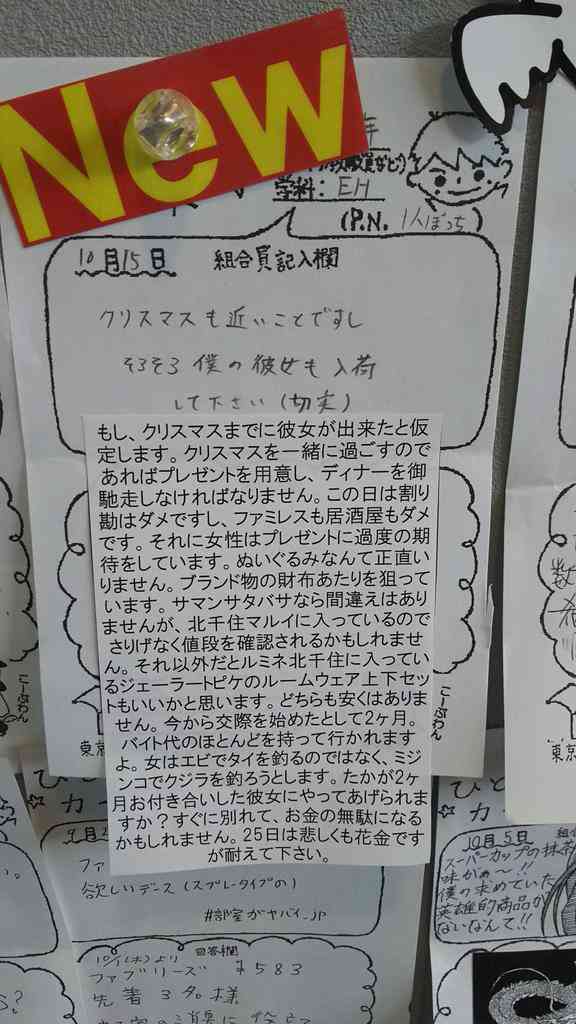 New
学科: EH
(P.N. 1人ぼっち)
10月15日 組合員記入欄
クリスマスも近いことですし
そろそろ僕の彼女も入荷
して下さい(切実)
もし、クリスマスまでに彼女が出来たと仮
定します。クリスマスを一緒に過ごすので
あればプレゼントを用意し、ディナーを御
馳走しなければなりません。この日は割り
勘はダメですし、ファミレスも居酒屋もダメ
です。それに女性はプレゼントに過度の期
待をしています。ぬいぐるみなんて正直い
りません。ブランド物の財布あたりを狙って
います。サマンサタバサなら間違えはあり
ませんが、北千住マルイに入っているので
さりげなく値段を確認されるかもしれませ
ん。それ以外だとルミネ北千住に入ってい
るジェーラートピケのルームウェア上下セッ
トもいいかと思います。どちらも安くはありま
せん。今から交際を始めたとして2ヶ月。
バイト代のほとんどを持って行かれます
よ。女はエビでタイを釣るのではなく、ミジ
ンコでクジラを釣ろうとします。たかが2ヶ
月お付き合いした彼女にやってあげられま
すか?すぐに別れて、お金の無駄になる
かもしれません。25日は悲しくも花金です
が耐えて下さい。
こーぷわん
東京
ひと
カー
ファ
欲しいデース(スプレータイプの)
#部室がヤバイ_jp
10/1(木)より 回答欄
ファブリーズ ¥583
先着3名様
ひと
☆カー
10月5日
スーパーカップの抹茶
味かぁ〜!!
僕の求めていた
英雄的商品が
ないなんて!!
東京